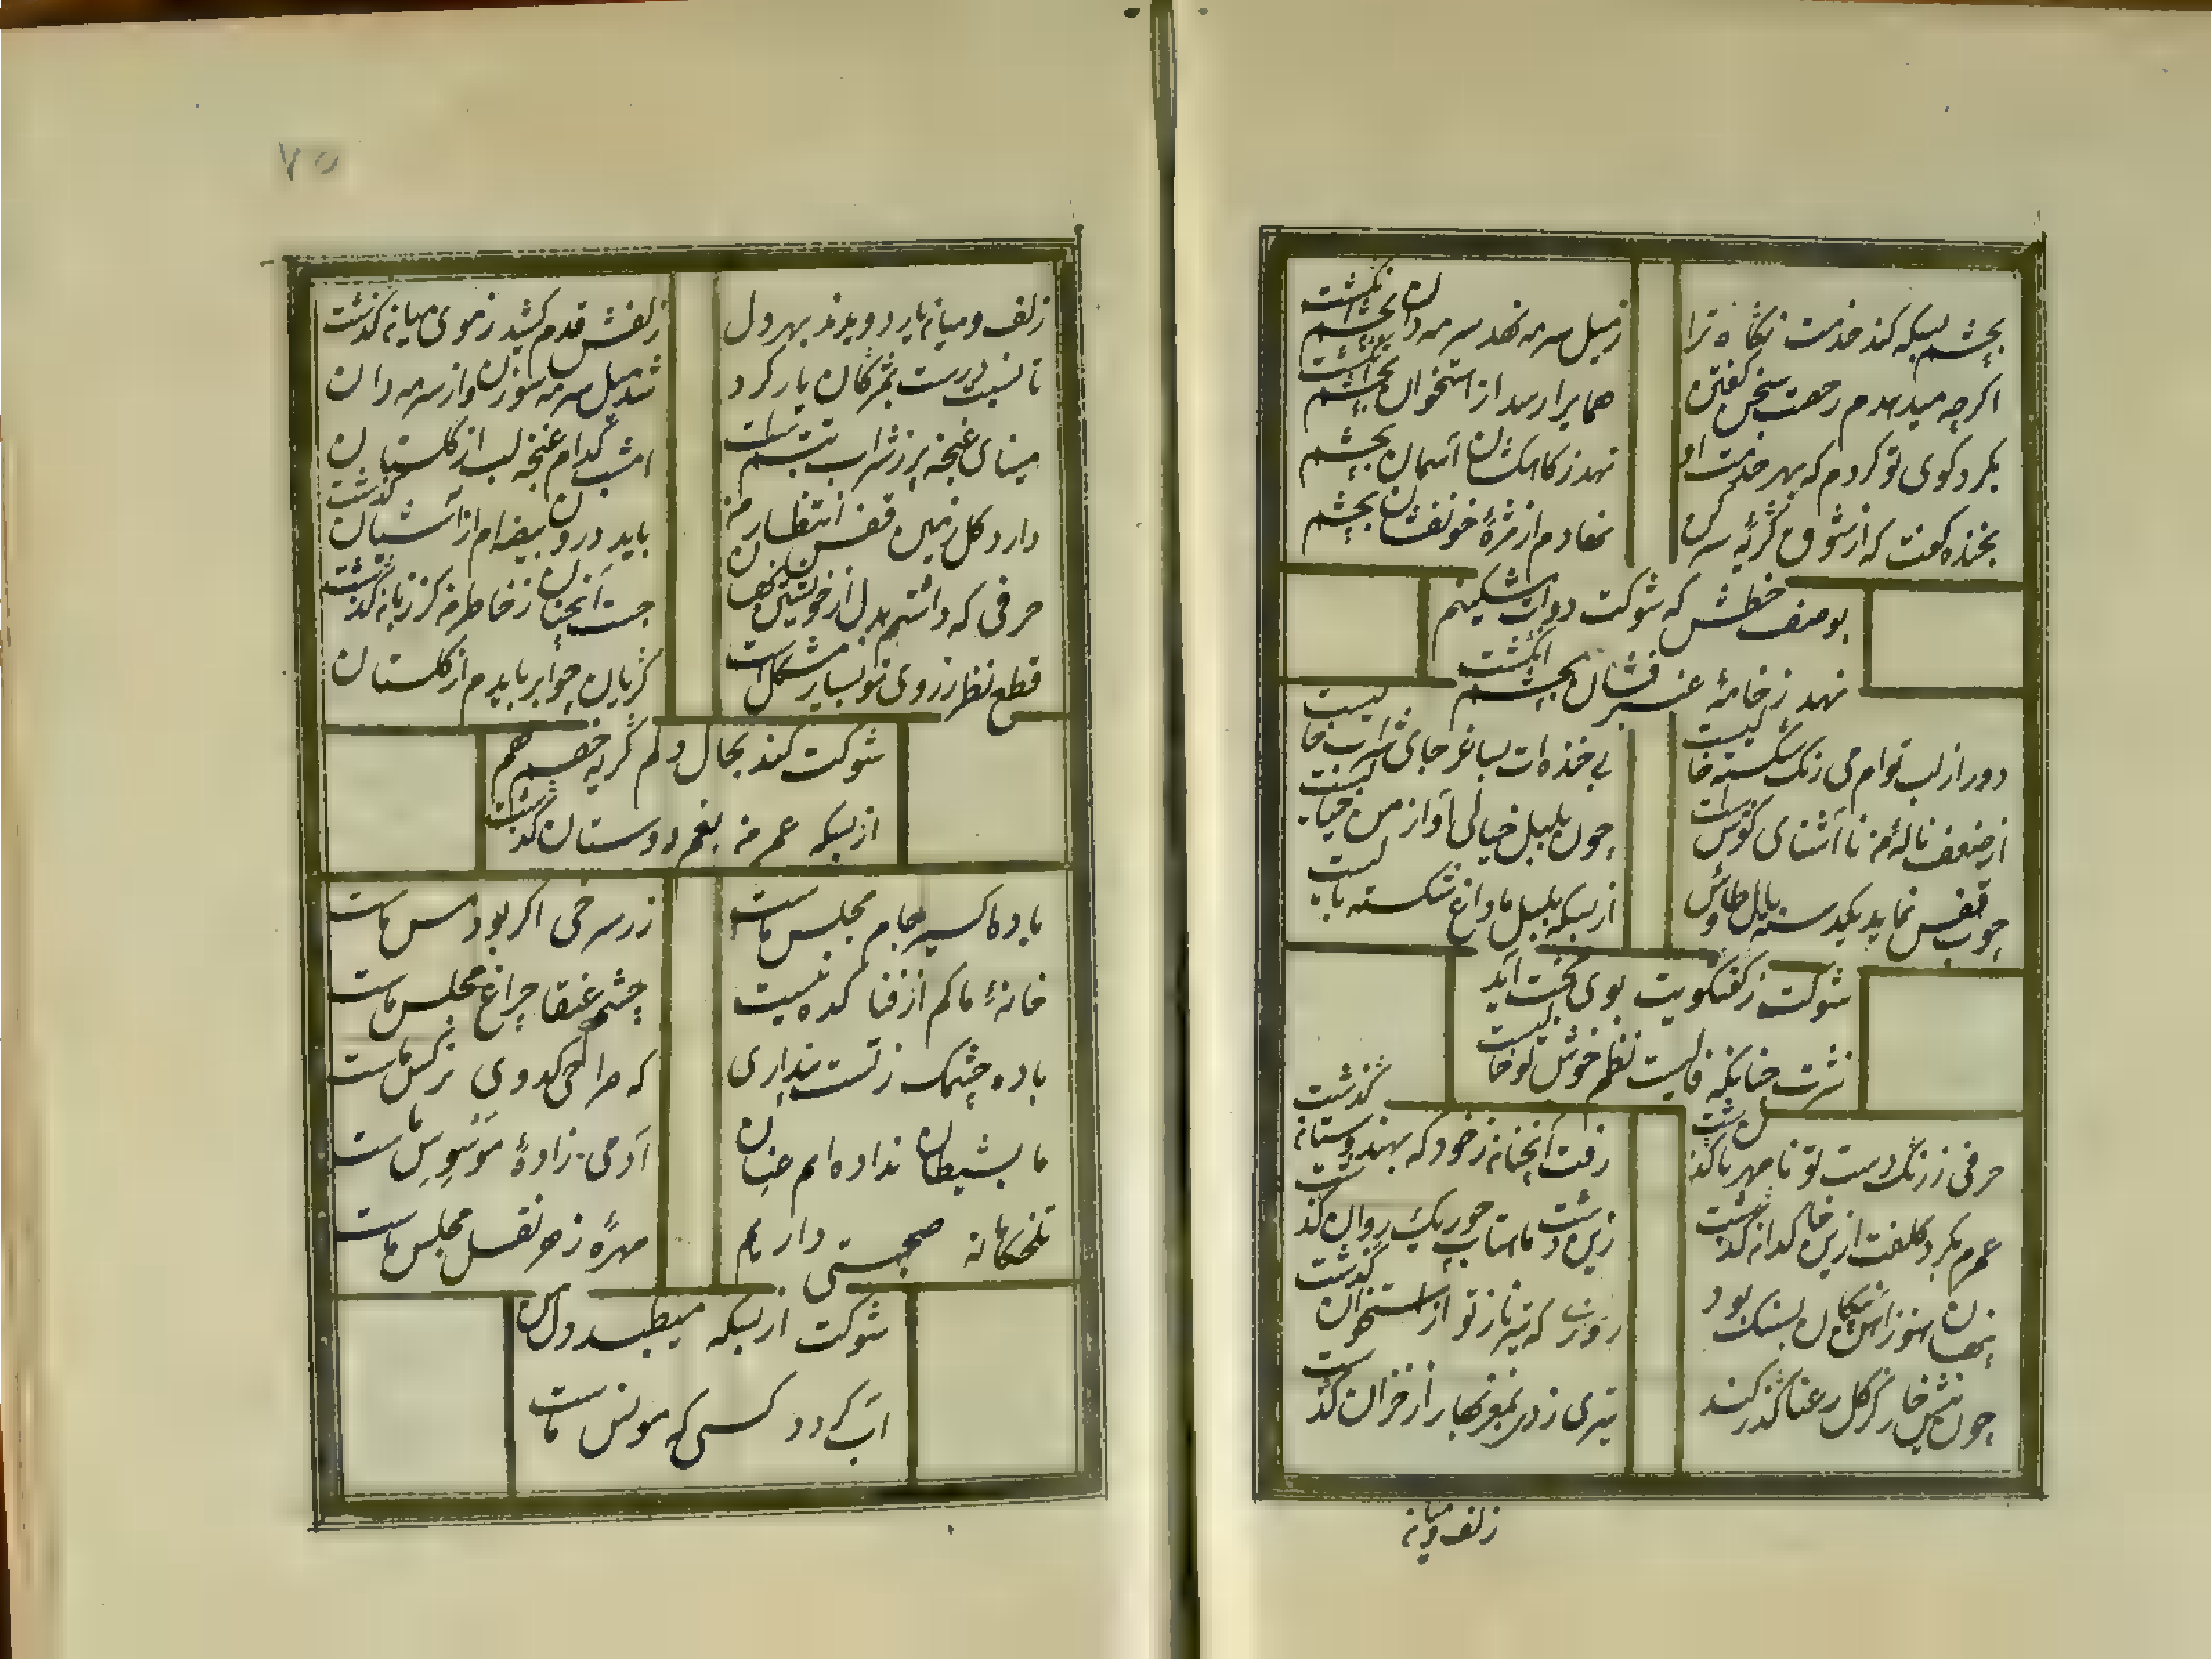 بچشم بسکه کند خدمت نگاه ترا
ز میل سرمه نهد سرمه دان بچشم انگشت
اگرچه میدهدم رخصت سخن گفتن
هما برارد از استخوان بچشم انگشت
بگرد کوی تو کردم که بهر خدمت او
نهد ز کاهکشان آسمان بچشم
بخنده گفت که از شوق گریه سر کن
نهادم از مژهٔ خونفشان بچشم
بوصف خطش که شوکت دوات شکینم
نهد ز خامهٔ عنبر فشان بچشم انگشت
دور از لب توام می رنگ شکسته
بی خنده ات بساغر جای شراب
از ضعف نالهٔ من نا آشنای گوش است
چون بلبل خیالی آواز من
چوب قفس نماید یکدسته بال طاوس
از بسکه بلبل ما داغ شکسته
شوکت ز گفتگویت بوی آید
نثرت چنانکه نظم خوش تو
حرفی ز رنگ دست تو نا مهربان گذشت
رفت آنچنان ز خود که بهندوستان گذشت
عمرم بگرد کلفت ازین خاکدان گذشت
زین دشت ماهتاب چو ریگ روان گذشت
پنهان هنوز آهن پیکان بسنگ بود
روزی که تیر ناز تو از استخوان گذشت
چون نیش خار کز گل رعنا گذر کند
تیری زدم بمغز بهار از خزان گذشت
زلف میانه
۷۵
زلف و میانه یار دویدند بهر دل
زلفش قدم کشید ز موی میانه گذشت
تا نسبت درست بمژگان یار کرد
شد میل سرمه سوزن و از سرمه دان
مینای غنچه پر ز شراب تبسم است
امشب کدام غنچه لب از گلستان گذشت
دارد گل زمین قفس انتظار من
باید درون بیضه ام از آشیان
حرفی که داشتم بدل از خویشتن نهان
جست آنچنان ز خاطر من کز زبان گذشت
قطع نظر ز روی تو بسیار مشکل است
گریان چو ابر بایدم از گلستان
شوکت کند بحال دلم گریه خصم هم
از بسکه عمر من بغم دوستان گذشت
باده اکسیر جام مجلس ماست
زر سرخی اگر بود مس ماست
خانهٔ ما کم از فنا کده نیست
چشم عنقا چراغ مجلس ماست
باده چشمک زنست پنداری
که صراحی کدوی نرگس ماست
ما بشیطان نداده ایم عنان
آدمی زادهٔ موسوس ماست
تلخکامانه صحبتی داریم
مهرهٔ زهر نقل مجلس ماست
شوکت از بسکه میطپد دل من
آب گردد کسی که مونس ماست